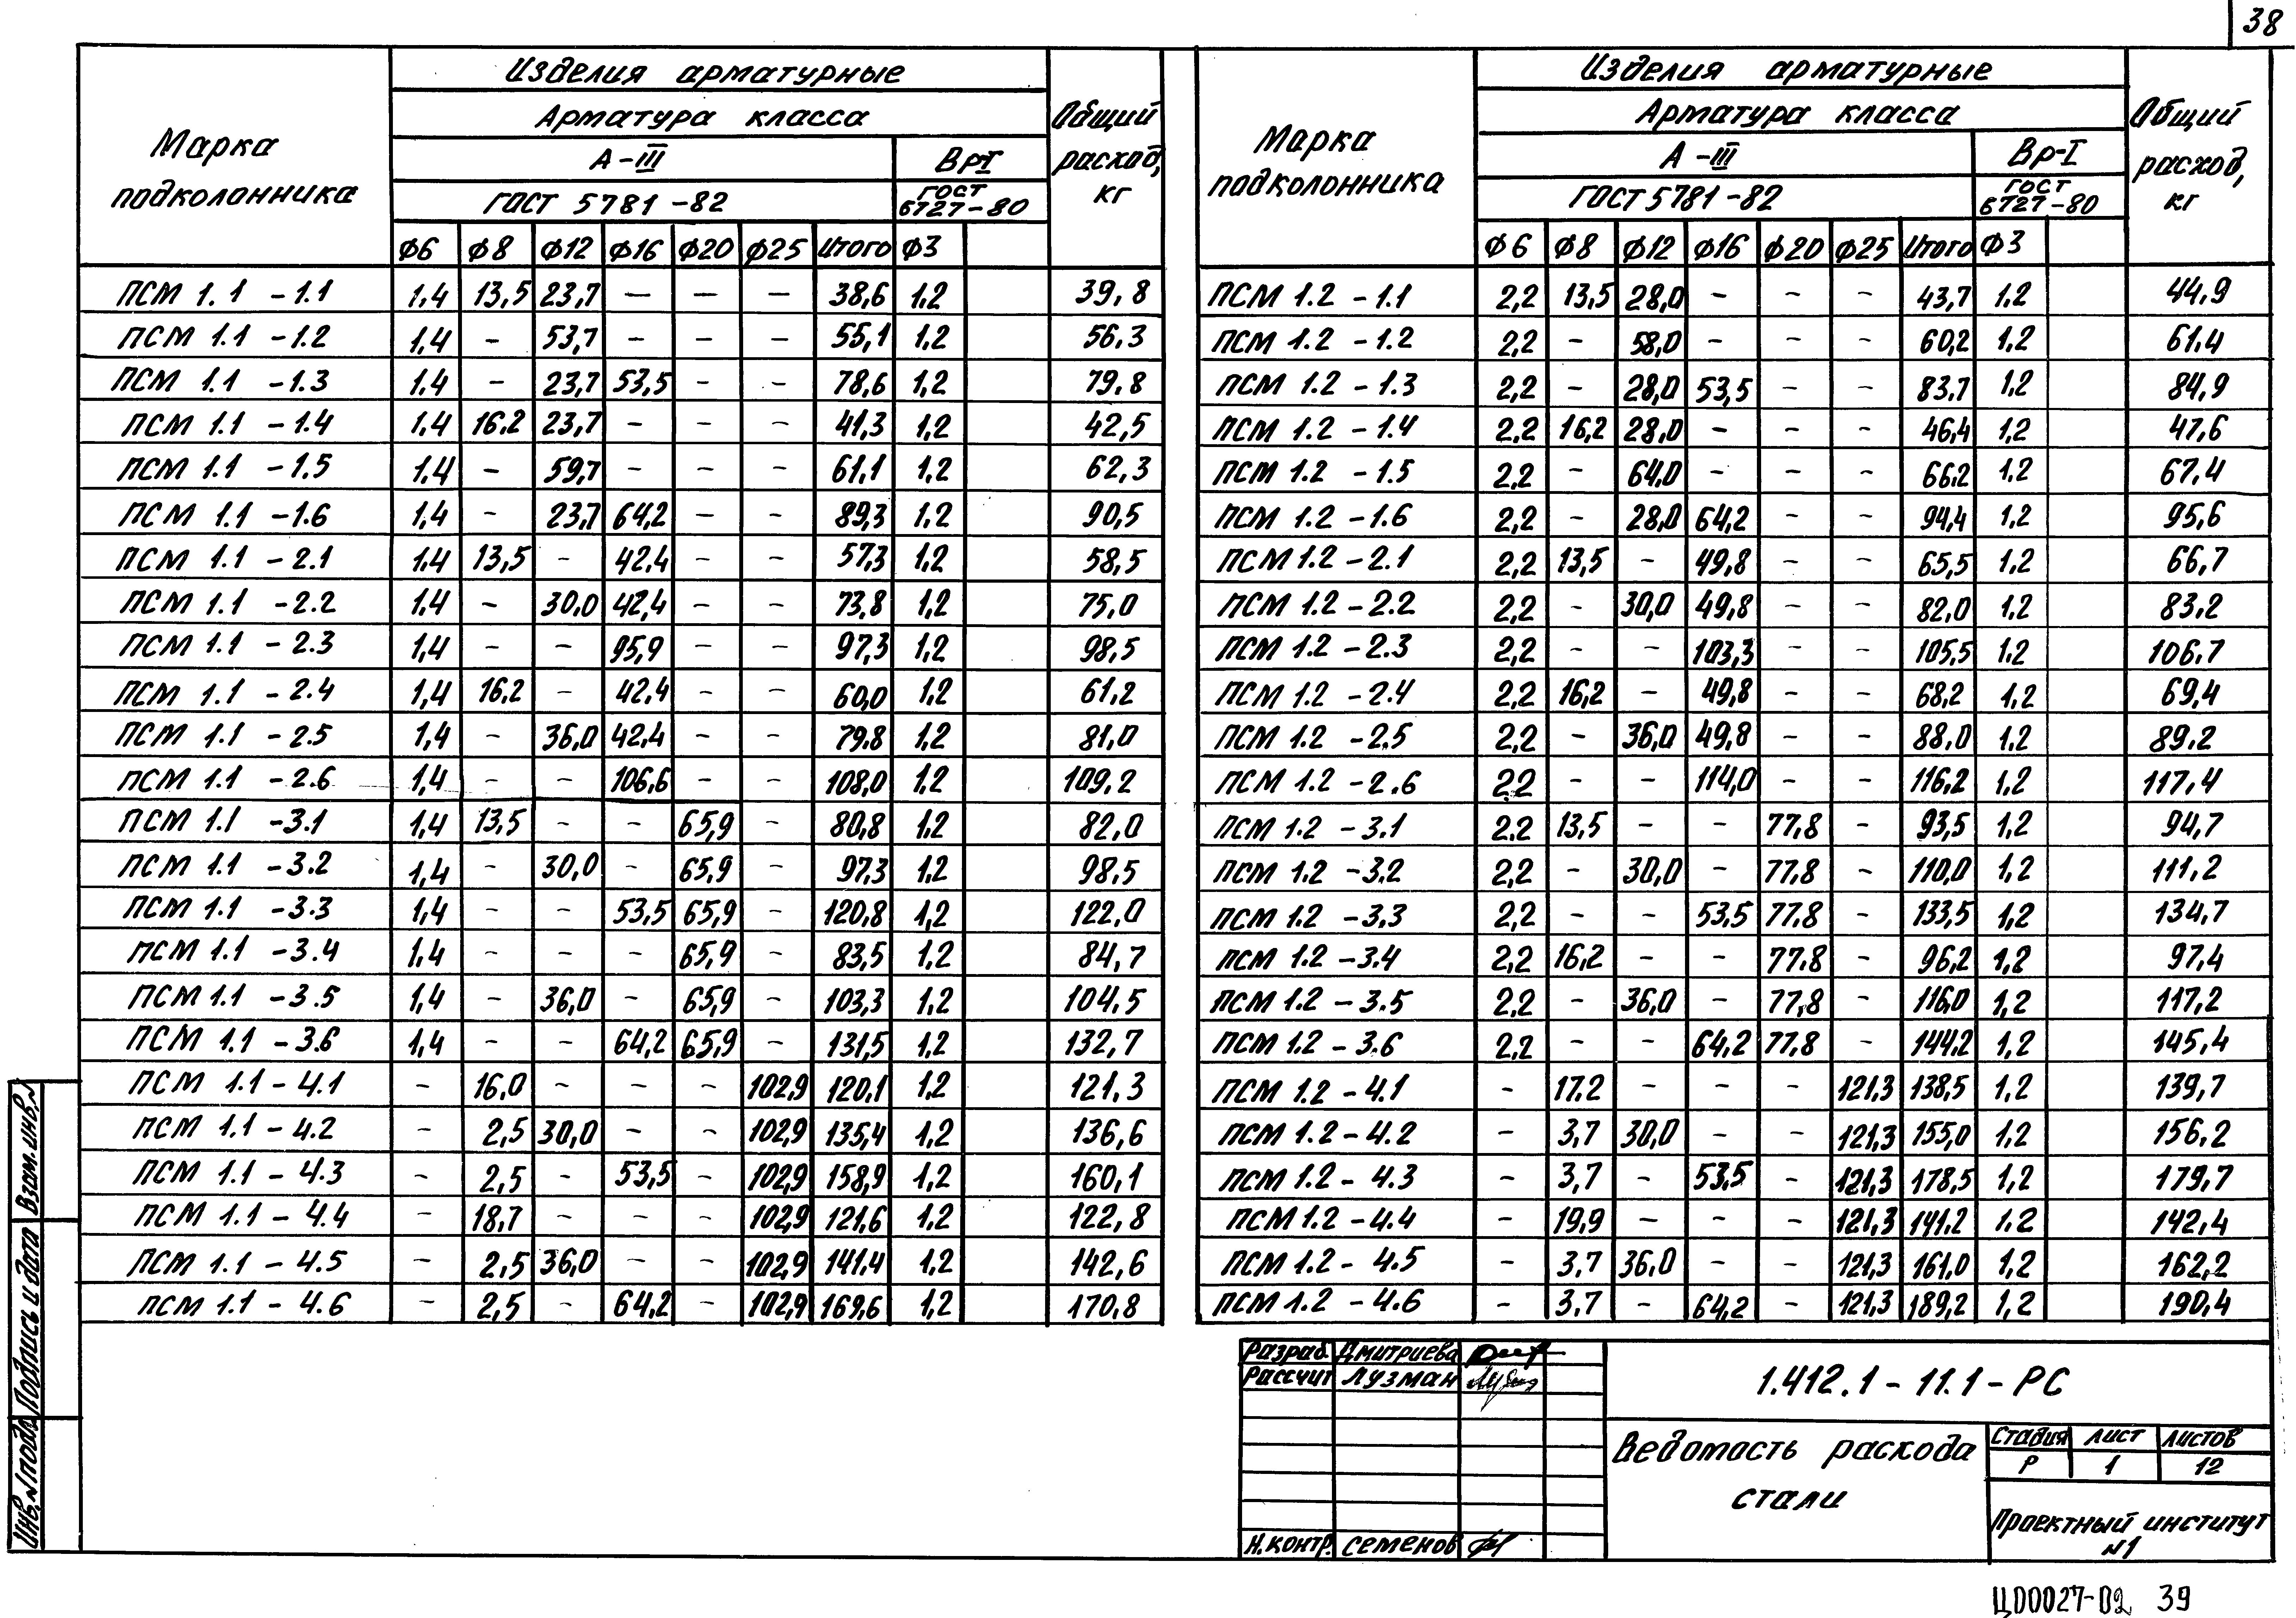 38
Изделия арматурные
Арматура класса
Марка подколонника
А-III
Вр-I
Общий расход, кг
ГОСТ 5781-82
ГОСТ 6727-80
Ф6 Ф8 Ф12 Ф16 Ф20 Ф25 Итого Ф3
ПСМ 1.1 -1.1 1,4 13,5 23,7 — — — 38,6 1,2 39,8
ПСМ 1.1 -1.2 1,4 - 53,7 - - - 55,1 1,2 56,3
ПСМ 1.1 -1.3 1,4 - 23,7 53,5 - - 78,6 1,2 79,8
ПСМ 1.1 -1.4 1,4 16,2 23,7 - - - 41,3 1,2 42,5
ПСМ 1.1 -1.5 1,4 - 59,7 - - - 61,1 1,2 62,3
ПСМ 1.1 -1.6 1,4 - 23,7 64,2 - - 89,3 1,2 90,5
ПСМ 1.1 -2.1 1,4 13,5 - 42,4 - - 57,3 1,2 58,5
ПСМ 1.1 -2.2 1,4 - 30,0 42,4 - - 73,8 1,2 75,0
ПСМ 1.1 -2.3 1,4 - - 95,9 - - 97,3 1,2 98,5
ПСМ 1.1 -2.4 1,4 16,2 - 42,4 - - 60,0 1,2 61,2
ПСМ 1.1 -2.5 1,4 - 36,0 42,4 - - 79,8 1,2 81,0
ПСМ 1.1 -2.6 1,4 - - 106,6 - - 108,0 1,2 109,2
ПСМ 1.1 -3.1 1,4 13,5 - - 65,9 - 80,8 1,2 82,0
ПСМ 1.1 -3.2 1,4 - 30,0 - 65,9 - 97,3 1,2 98,5
ПСМ 1.1 -3.3 1,4 - - 53,5 65,9 - 120,8 1,2 122,0
ПСМ 1.1 -3.4 1,4 - - - 65,9 - 83,5 1,2 84,7
ПСМ 1.1 -3.5 1,4 - 36,0 - 65,9 - 103,3 1,2 104,5
ПСМ 1.1 -3.6 1,4 - - 64,2 65,9 - 131,5 1,2 132,7
ПСМ 1.1 - 4.1 - 16,0 - - - 102,9 120,1 1,2 121,3
ПСМ 1.1 - 4.2 - 2,5 30,0 - - 102,9 135,4 1,2 136,6
ПСМ 1.1 - 4.3 - 2,5 - 53,5 - 102,9 158,9 1,2 160,1
ПСМ 1.1 - 4.4 - 18,7 - - - 102,9 121,6 1,2 122,8
ПСМ 1.1 - 4.5 - 2,5 36,0 - - 102,9 141,4 1,2 142,6
ПСМ 1.1 - 4.6 - 2,5 - 64,2 - 102,9 169,6 1,2 170,8
Изделия арматурные
Арматура класса
Марка подколонника
А-III
Вр-I
Общий расход, кг
ГОСТ 5781-82
ГОСТ 6727-80
Ф6 Ф8 Ф12 Ф16 Ф20 Ф25 Итого Ф3
ПСМ 1.2 -1.1 2,2 13,5 28,0 - - - 43,7 1,2 44,9
ПСМ 1.2 -1.2 2,2 - 58,0 - - - 60,2 1,2 61,4
ПСМ 1.2 -1.3 2,2 - 28,0 53,5 - - 83,7 1,2 84,9
ПСМ 1.2 -1.4 2,2 16,2 28,0 - - - 46,4 1,2 47,6
ПСМ 1.2 -1.5 2,2 - 64,0 - - - 66,2 1,2 67,4
ПСМ 1.2 -1.6 2,2 - 28,0 64,2 - - 94,4 1,2 95,6
ПСМ 1.2 -2.1 2,2 13,5 - 49,8 - - 65,5 1,2 66,7
ПСМ 1.2 -2.2 2,2 - 30,0 49,8 - - 82,0 1,2 83,2
ПСМ 1.2 -2.3 2,2 - - 103,3 - - 105,5 1,2 106,7
ПСМ 1.2 -2.4 2,2 16,2 - 49,8 - - 68,2 1,2 69,4
ПСМ 1.2 -2.5 2,2 - 36,0 49,8 - - 88,0 1,2 89,2
ПСМ 1.2 -2.6 2,2 - - 114,0 - - 116,2 1,2 117,4
ПСМ 1.2 -3.1 2,2 13,5 - - 77,8 - 93,5 1,2 94,7
ПСМ 1.2 -3.2 2,2 - 30,0 - 77,8 - 110,0 1,2 111,2
ПСМ 1.2 -3.3 2,2 - - 53,5 77,8 - 133,5 1,2 134,7
ПСМ 1.2 -3.4 2,2 16,2 - - 77,8 - 96,2 1,2 97,4
ПСМ 1.2 -3.5 2,2 - 36,0 - 77,8 - 116,0 1,2 117,2
ПСМ 1.2 -3.6 2,2 - - 64,2 77,8 - 144,2 1,2 145,4
ПСМ 1.2 - 4.1 - 17,2 - - - 121,3 138,5 1,2 139,7
ПСМ 1.2 - 4.2 - 3,7 30,0 - - 121,3 155,0 1,2 156,2
ПСМ 1.2 - 4.3 - 3,7 - 53,5 - 121,3 178,5 1,2 179,7
ПСМ 1.2 - 4.4 - 19,9 - - - 121,3 141,2 1,2 142,4
ПСМ 1.2 - 4.5 - 3,7 36,0 - - 121,3 161,0 1,2 162,2
ПСМ 1.2 - 4.6 - 3,7 - 64,2 - 121,3 189,2 1,2 190,4
Инв.№подл. Подпись и дата Взам.инв.№
Разраб. Дмитриева
Рассчит Лузман
Н.контр. Семенов
1.412.1 - 11.1 - РС
Ведомость расхода стали
Стадия Лист Листов
Р 1 12
Проектный институт
№1
Ц00027-02 39